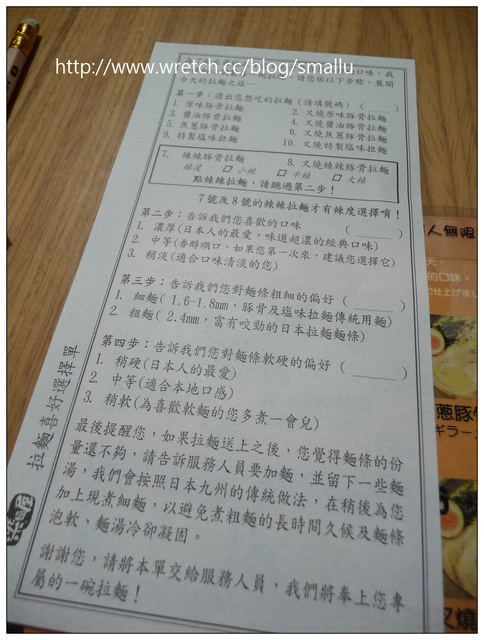 http://www.wretch.cc/blog/smallu
口味，我
今天的拉麵之旅…　請您依以下步驟，展開
第一步：選出您想吃的拉麵（請填號碼）（　　）
1. 原味豚骨拉麵　2. 叉燒原味豚骨拉麵
3. 醬油豚骨拉麵　4. 叉燒醬油豚骨拉麵
5. 焦蔥豚骨拉麵　6. 叉燒焦蔥豚骨拉麵
9. 特製塩味拉麵　10. 叉燒特製塩味拉麵
7. 辣辣豚骨拉麵　8. 叉燒辣辣豚骨拉麵
辣度　□ 小辣　□ 中辣　□ 大辣
點辣辣拉麵，請跳過第二步！
7號及8號的辣辣拉麵才有辣度選擇唷！
第二步：告訴我們您喜歡的口味（　　）
1. 濃厚(日本人的最愛，味道超濃的經典口味)
2. 中等(香醇順口，如果您第一次來，建議您選擇它)
3. 稍淡(適合口味清淡的您)
第三步：告訴我們您對麵條粗細的偏好（　　）
1. 細麵( 1.6-1.8mm，豚骨及塩味拉麵傳統用麵)
2. 粗麵( 2.4mm，富有咬勁的日本拉麵麵條)
第四步：告訴我們您對麵條軟硬的偏好（　　）
1. 稍硬(日本人的最愛)
2. 中等(適合本地口感)
3. 稍軟(為喜歡軟麵的您多煮一會兒)
最後提醒您，如果拉麵送上之後，您覺得麵條的份
量還不夠，請告訴服務人員要加麵，並留下一些麵
湯，我們會按照日本九州的傳統做法，在稍後為您
加上現煮細麵，以避免煮粗麵的長時間久候及麵條
泡軟、麵湯冷卻凝固。
謝謝您，請將本單交給服務人員，我們將奉上您專
屬的一碗拉麵！
拉麵喜好選擇單
人無限
天，
的口味。
蔥豚
ギラー
叉燒